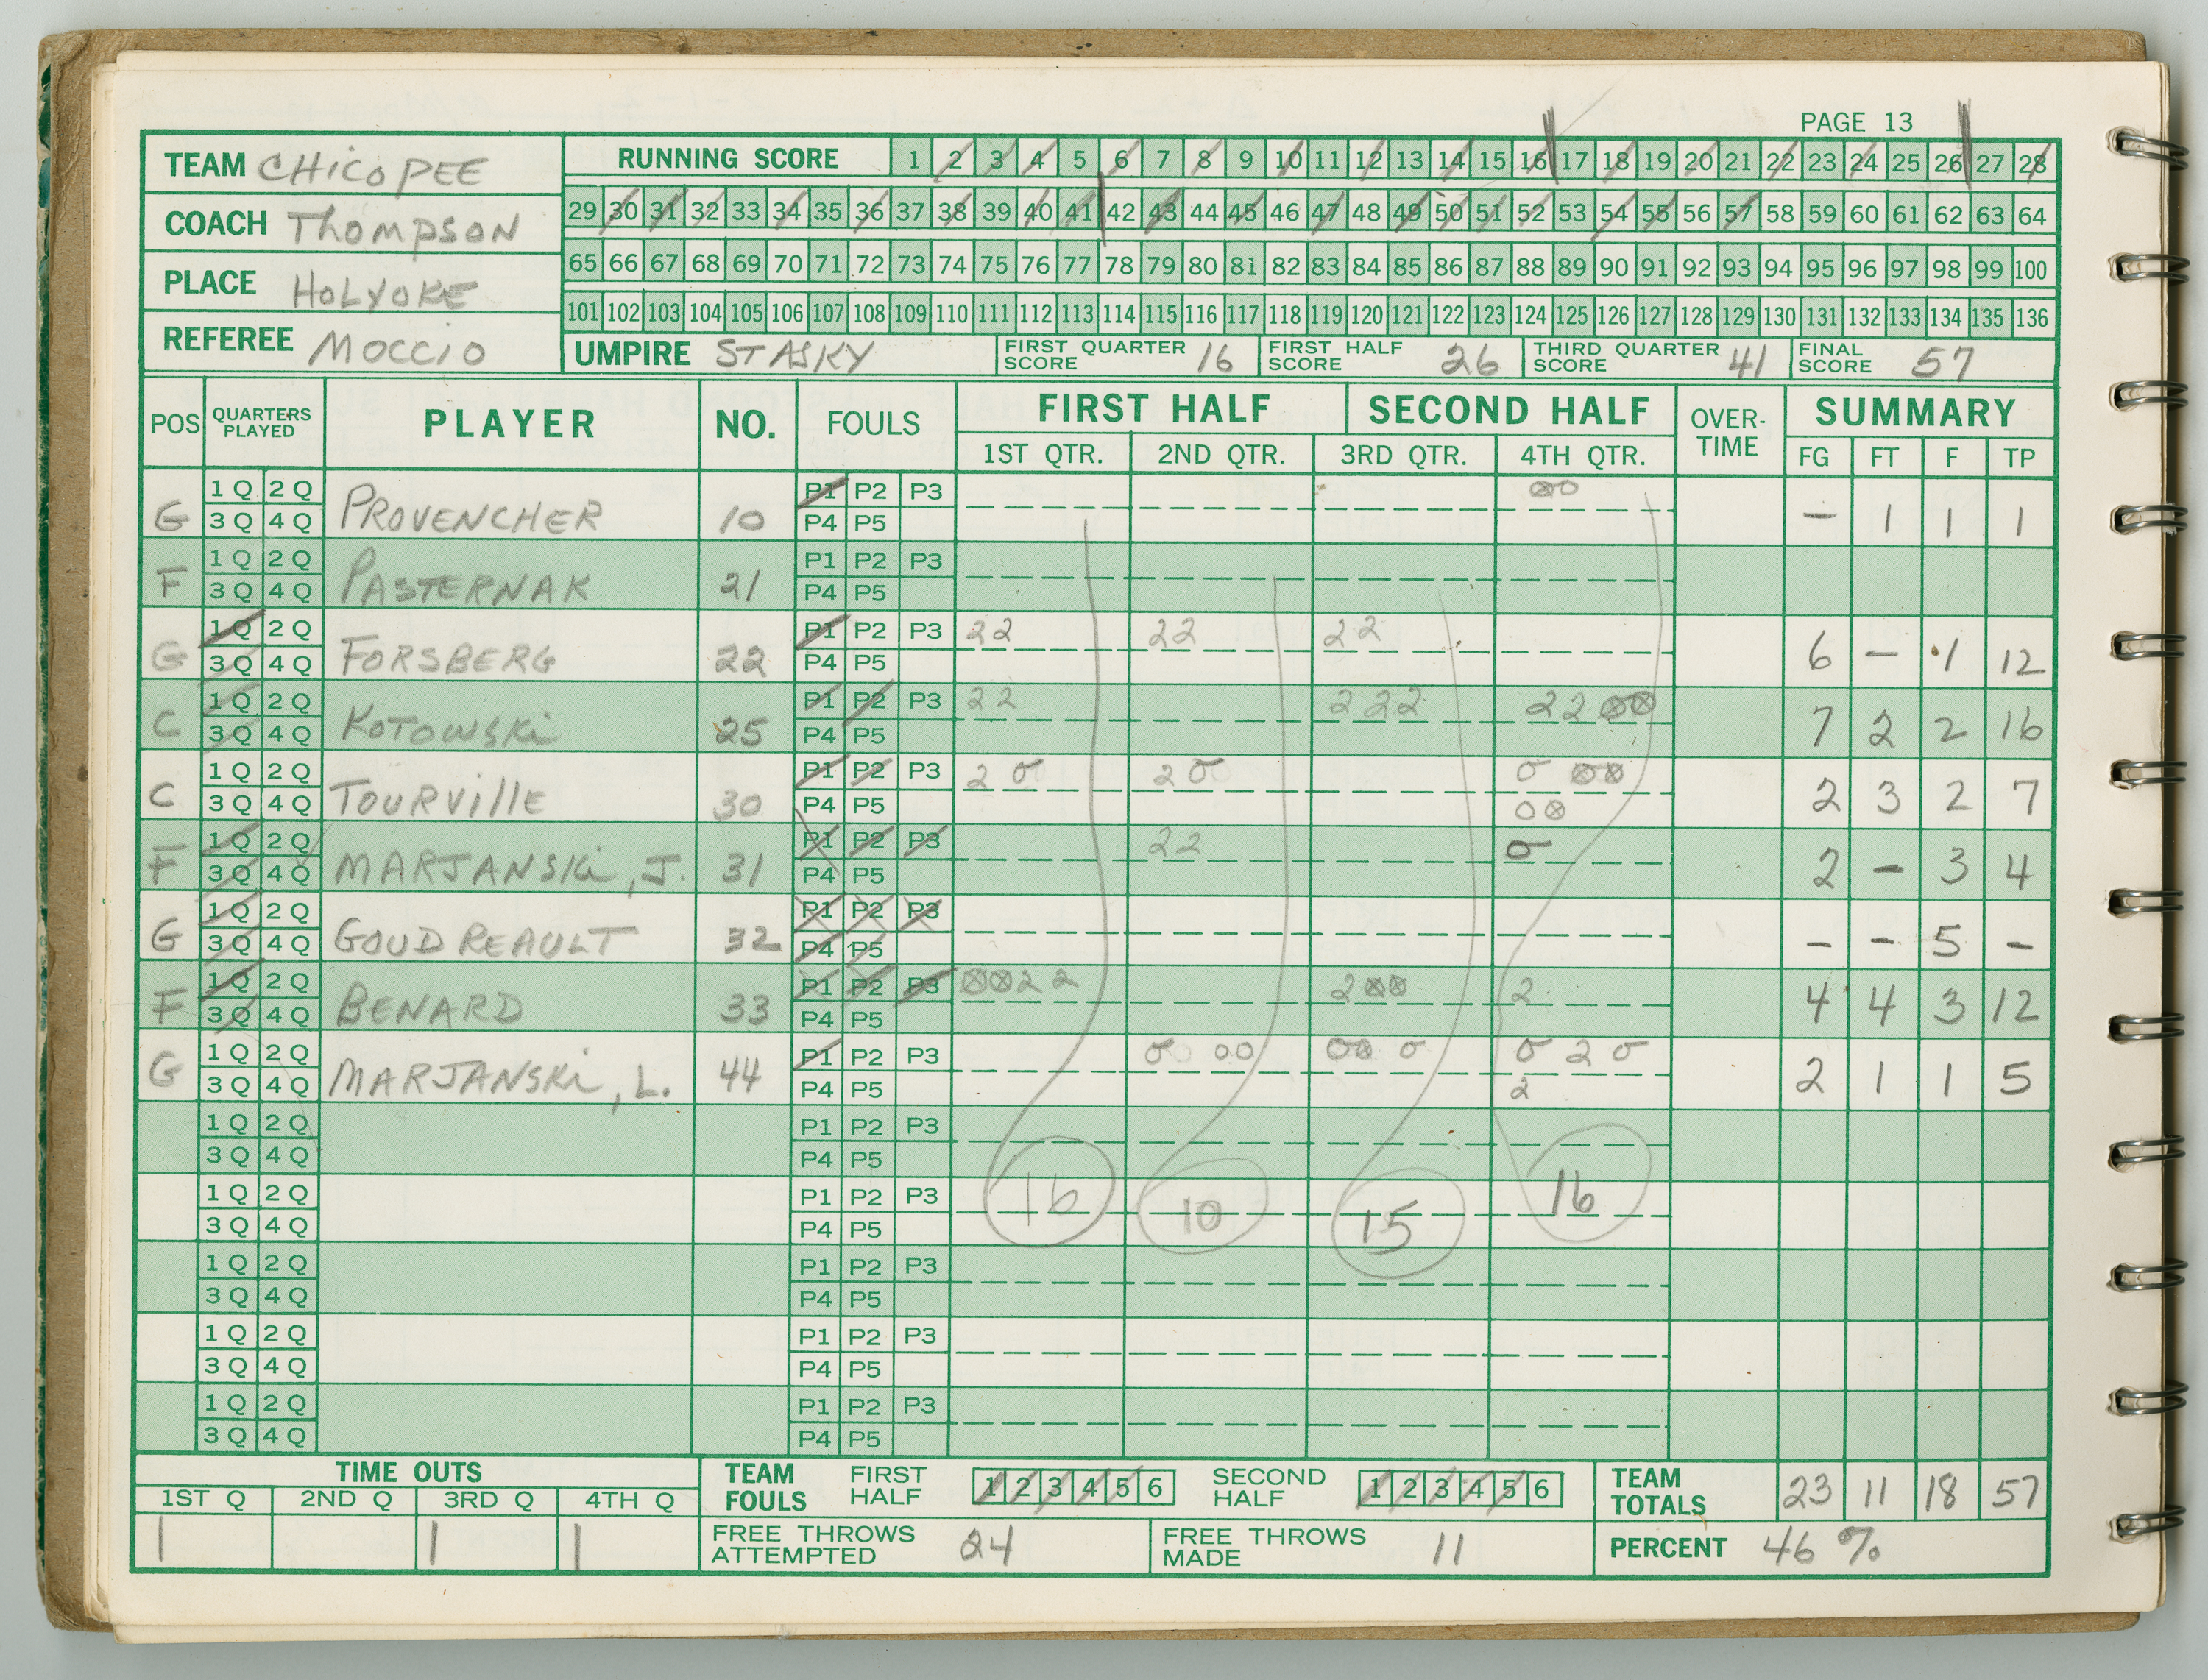 PAGE 13
TEAM CHICOPEE
COACH THOMPSON
PLACE HOLYOKE
REFEREE MOCCIO
RUNNING SCORE 1 2 3 4 5 6 7 8 9 10 11 12 13 14 15 16 17 18 19 20 21 22 23 24 25 26 27 28
29 30 31 32 33 34 35 36 37 38 39 40 41 42 43 44 45 46 47 48 49 50 51 52 53 54 55 56 57 58 59 60 61 62 63 64
65 66 67 68 69 70 71 72 73 74 75 76 77 78 79 80 81 82 83 84 85 86 87 88 89 90 91 92 93 94 95 96 97 98 99 100
101 102 103 104 105 106 107 108 109 110 111 112 113 114 115 116 117 118 119 120 121 122 123 124 125 126 127 128 129 130 131 132 133 134 135 136
UMPIRE STASKY FIRST QUARTER SCORE 16 FIRST HALF SCORE 26 THIRD QUARTER SCORE 41 FINAL SCORE 57
POS QUARTERS PLAYED PLAYER NO. FOULS FIRST HALF SECOND HALF OVER-TIME SUMMARY
1ST QTR. 2ND QTR. 3RD QTR. 4TH QTR. FG FT F TP
1 Q 2 Q P1 P2 P3
G 3 Q 4 Q PROVENCHER 10 P4 P5 – 1 1 1
1 Q 2 Q P1 P2 P3
F 3 Q 4 Q PASTERNAK 21 P4 P5
1 Q 2 Q P1 P2 P3 22 22 22
G 3 Q 4 Q FORSBERG 22 P4 P5 6 – 1 12
1 Q 2 Q P1 P2 P3 22 222 22
C 3 Q 4 Q KOTOWSKi 25 P4 P5 7 2 2 16
1 Q 2 Q P1 P2 P3 2 2
C 3 Q 4 Q TOURVIllE 30 P4 P5 2 3 2 7
1 Q 2 Q P1 P2 P3 22
F 3 Q 4 Q MARJANSKi, J. 31 P4 P5 2 – 3 4
1 Q 2 Q P1 P2 P3
G 3 Q 4 Q GOUDREAULT 32 P4 P5 – – 5 –
1 Q 2 Q P1 P2 P3 22 2 2
F 3 Q 4 Q BENARD 33 P4 P5 4 4 3 12
1 Q 2 Q P1 P2 P3 2
G 3 Q 4 Q MARJANSKi, L. 44 P4 P5 2 2 1 1 5
1 Q 2 Q P1 P2 P3
3 Q 4 Q P4 P5
1 Q 2 Q P1 P2 P3
3 Q 4 Q P4 P5
16 10 15 16
1 Q 2 Q P1 P2 P3
3 Q 4 Q P4 P5
1 Q 2 Q P1 P2 P3
3 Q 4 Q P4 P5
1 Q 2 Q P1 P2 P3
3 Q 4 Q P4 P5
TIME OUTS
1ST Q 2ND Q 3RD Q 4TH Q
1 1 1
TEAM FOULS FIRST HALF 1 2 3 4 5 6 SECOND HALF 1 2 3 4 5 6
TEAM TOTALS 23 11 18 57
FREE THROWS ATTEMPTED 24 FREE THROWS MADE 11 PERCENT 46 %